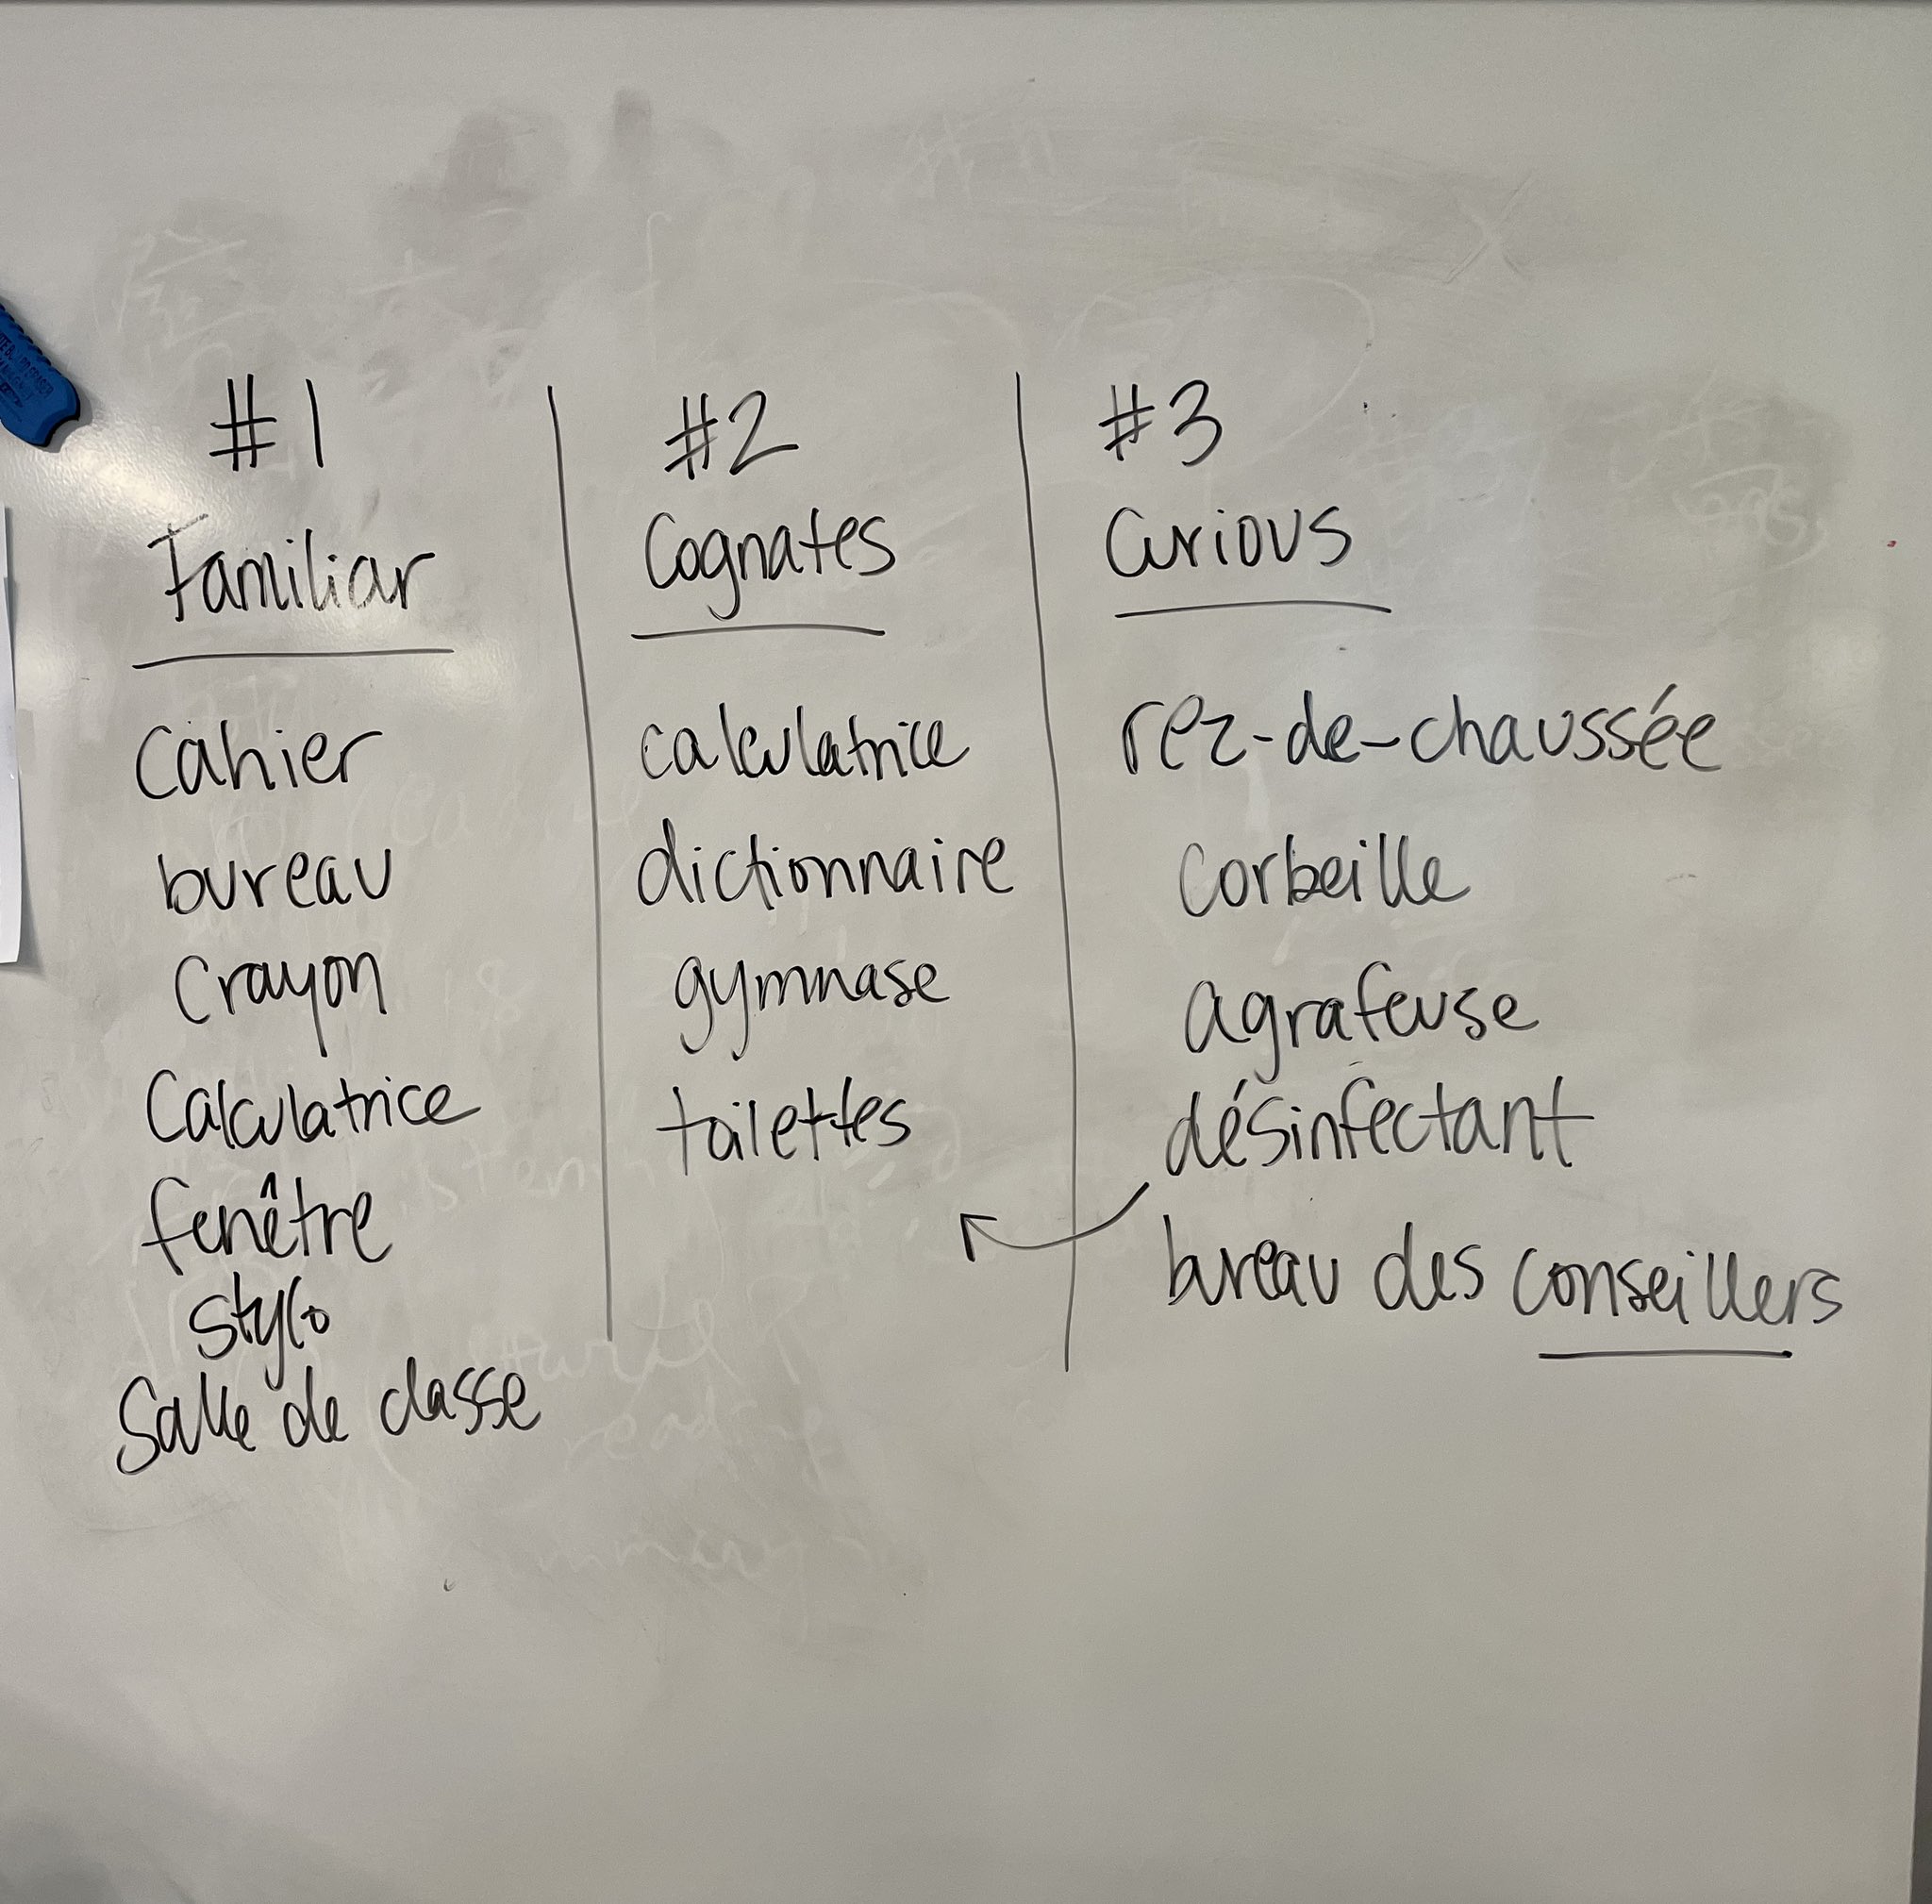 #1
Familiar
cahier
bureau
crayon
calculatrice
fenêtre
stylo
Salle de classe
#2
Cognates
calculatrice
dictionnaire
gymnase
toilettes
#3
Curious
rez-de-chaussée
corbeille
agrafeuse
désinfectant
bureau des conseillers